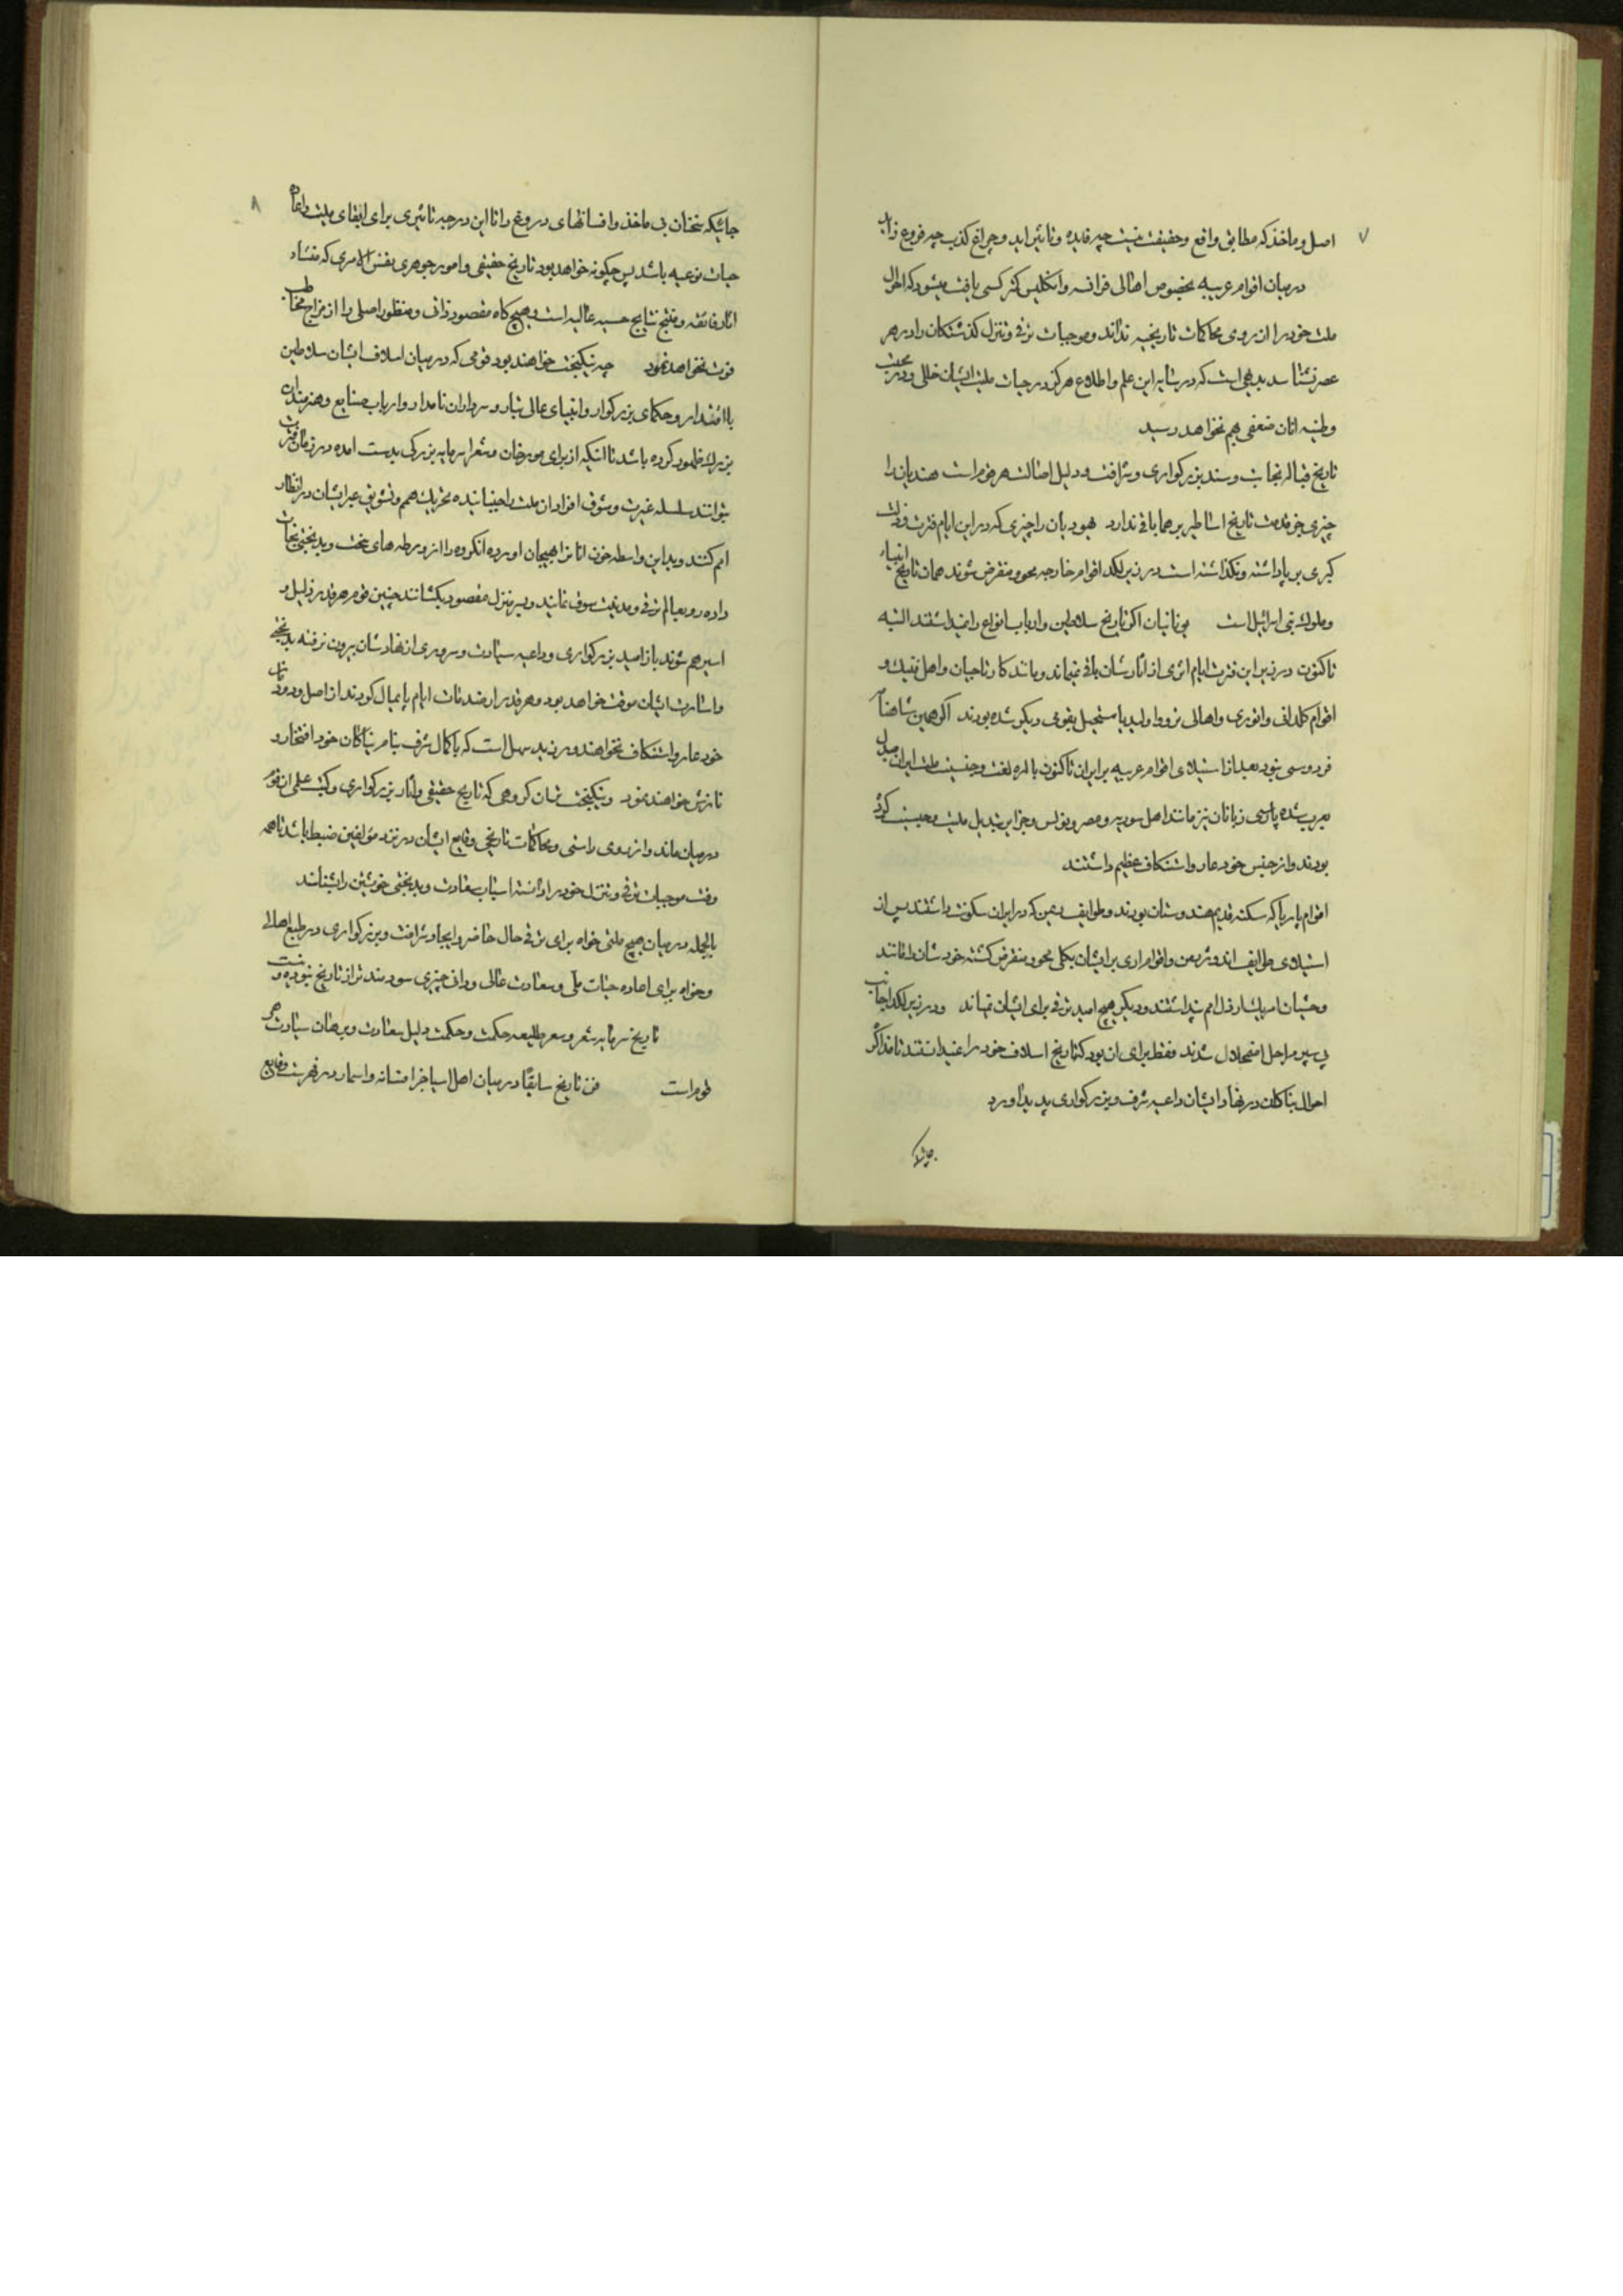 ۷
اصل و ماخذ که مطابق واقع و حقیقت نیست چه فایده و تاثیر اید و چراغ کذب چه فروغ زاید
در میان اقوام غربیه بخصوص اهالی فرانسه و انکلیس کمتر کسی یافت میشود که احوال
ملت خود را از روی محاکمات تاریخیه نداند و موجبات ترقی و تنزل کذشتکان را در هر
عصر نشناسد بدیهی است که در سایه این علم و اطلاع هرکز در حیات ملیت ایشان خللی و در محبت
وطنیه انان ضعفی هم نخواهد رسید
تاریخ قباله نجابت و سند بزرکواری و شرافت و دلیل اصالت هر قوم است هندیان را
چیزی جز قدمت تاریخ اساطیر برهما باقی ندارد یهودیان را چیزی که در این ایام فترت و ذلت
کبری بر پا داشته و نکذاشته است در زیر لکد اقوام خارجه محو و منقرض شوند همان تاریخ انبیاء
و ملوک بنی اسرائیل است یونانیان اکر تاریخ سلاطین و ارباب انواع را نمیداشتند البته
تاکنون در زیر این فترت ایام اثری از اثارشان باقی نمیماند و مانند کارتاجیان و اهل فنیک و
اقوام کلدانی و اثوری و اهالی نزووا و لیدیا مستحیل بقومی دیکر شده بودند اکر همین شاهنامه
فردوسی نبود بعد از استیلای اقوام عربیه بر ایران تاکنون بالمره لغت و جنسیت ملت ایران مبدل
بعرب شده پارسی زبانان نیز مانند اهل سوریه و مصر و تونس و جزایر تبدیل ملیت و جنسیت کرده
بودند و از جنس خود عار و استنکاف عظیم داشتند
اقوام پاریا که سکنه قدیم هندوستان بودند و طوایف دیمن که در ایران سکونت داشتند پس از
استیلای طوایف اندوژرمن و اقوام اری بر ایشان بکلی محو و منقرض کشته خودشان را مانند
وحشیان امریک ارذل امم پنداشتند و دیکر هیچ امید ترقی برای ایشان نماند و در زیر لکد اجانب
پی سپر مراحل اضمحلال شدند فقط برای ان بود که تاریخ اسلاف خود را نمیدانستند تا تذاکر
احوال نیاکان در نهاد ایشان داعیه شرف و بزرکواری پدید اورد
جائیکه
۸
جائیکه سخنان بی ماخذ و افسانهای دروغ را تا این درجه تاثیری برای ابقای ملیت و اعاده
حیات نوعیه باشد پس چکونه خواهد بود تاریخ حقیقی و امور جوهری نفس الامری که منشاء
اثار فائقه و منتج نتایج حسیه عالیه است و هیچ کاه مقصود ذاتی و منظور اصلی را از مزاج مخاطب
فوت نخواهد نمود چه نیکبخت خواهند بود قومی که در میان اسلاف ایشان سلاطین
با اقتدار و حکمای بزرکوار و انبیای عالی تبار و سرداران نامدار و ارباب صنایع و هنرمندان
بزرک ظهور کرده باشد تا انکه از برای مورخان و شعرا سرمایه بزرکی بدست امده در زمان فترت
بتوانند سلسله غیرت و شوق افراد ان ملت را جنبانیده تحریک همم و تشویق عبر ایشان در انظار
امم کنند و بداین واسطه خون انانرا بهیجان اورده انکروه را از ورطه های سخت و بدبختی نجات
داده رو بعالم ترقی و مدنیت سوق نمایند و بسر منزل مقصود بکشانند چنین قوم هر قدر ذلیل و
اسیر هم شوند باز امید بزرکواری و داعیه سیادت و سروری از نهادشان بیرون نرفته بدبختی
و اسارت ایشان موقت خواهد بود و هر قدر از صدمات ایام پایمال کردند از اصل و دودمان
خود عار و استنکاف نخواهند ورزید سهل است که با کمال شرف بنام نیاکان خود افتخار و
نازش خواهند نمود و نیکبخت تر ان کروهی که تاریخ حقیقی و اثار بزرکواری و کتب علمی ان قوم
در میان ماند و از روی راستی و محاکمات تاریخی وقایع ایشان در نزد مؤلفین ضبط باشد تا همه
وقت موجبات ترقی و تنزل خود را دانسته اسباب سعادت و بدبختی خویشتن را بشناسند
بالجمله در میان هیچ ملتی خواه برای ترقی حال حاضر و ایجاد شرافت و بزرکواری در طبع اهالی
و خواه برای اعاده حیات ملی و سعادت عالی و دانی چیزی سودمندتر از تاریخ نبوده و نیست
تاریخ سرمایه شعر و شعر طلیعه حکمت و حکمت دلیل سعادت و برهان سیادت هر
قوم است فن تاریخ سابقًا در میان اهل اسیا جز افسانه و اسمار در فهرست وقایع